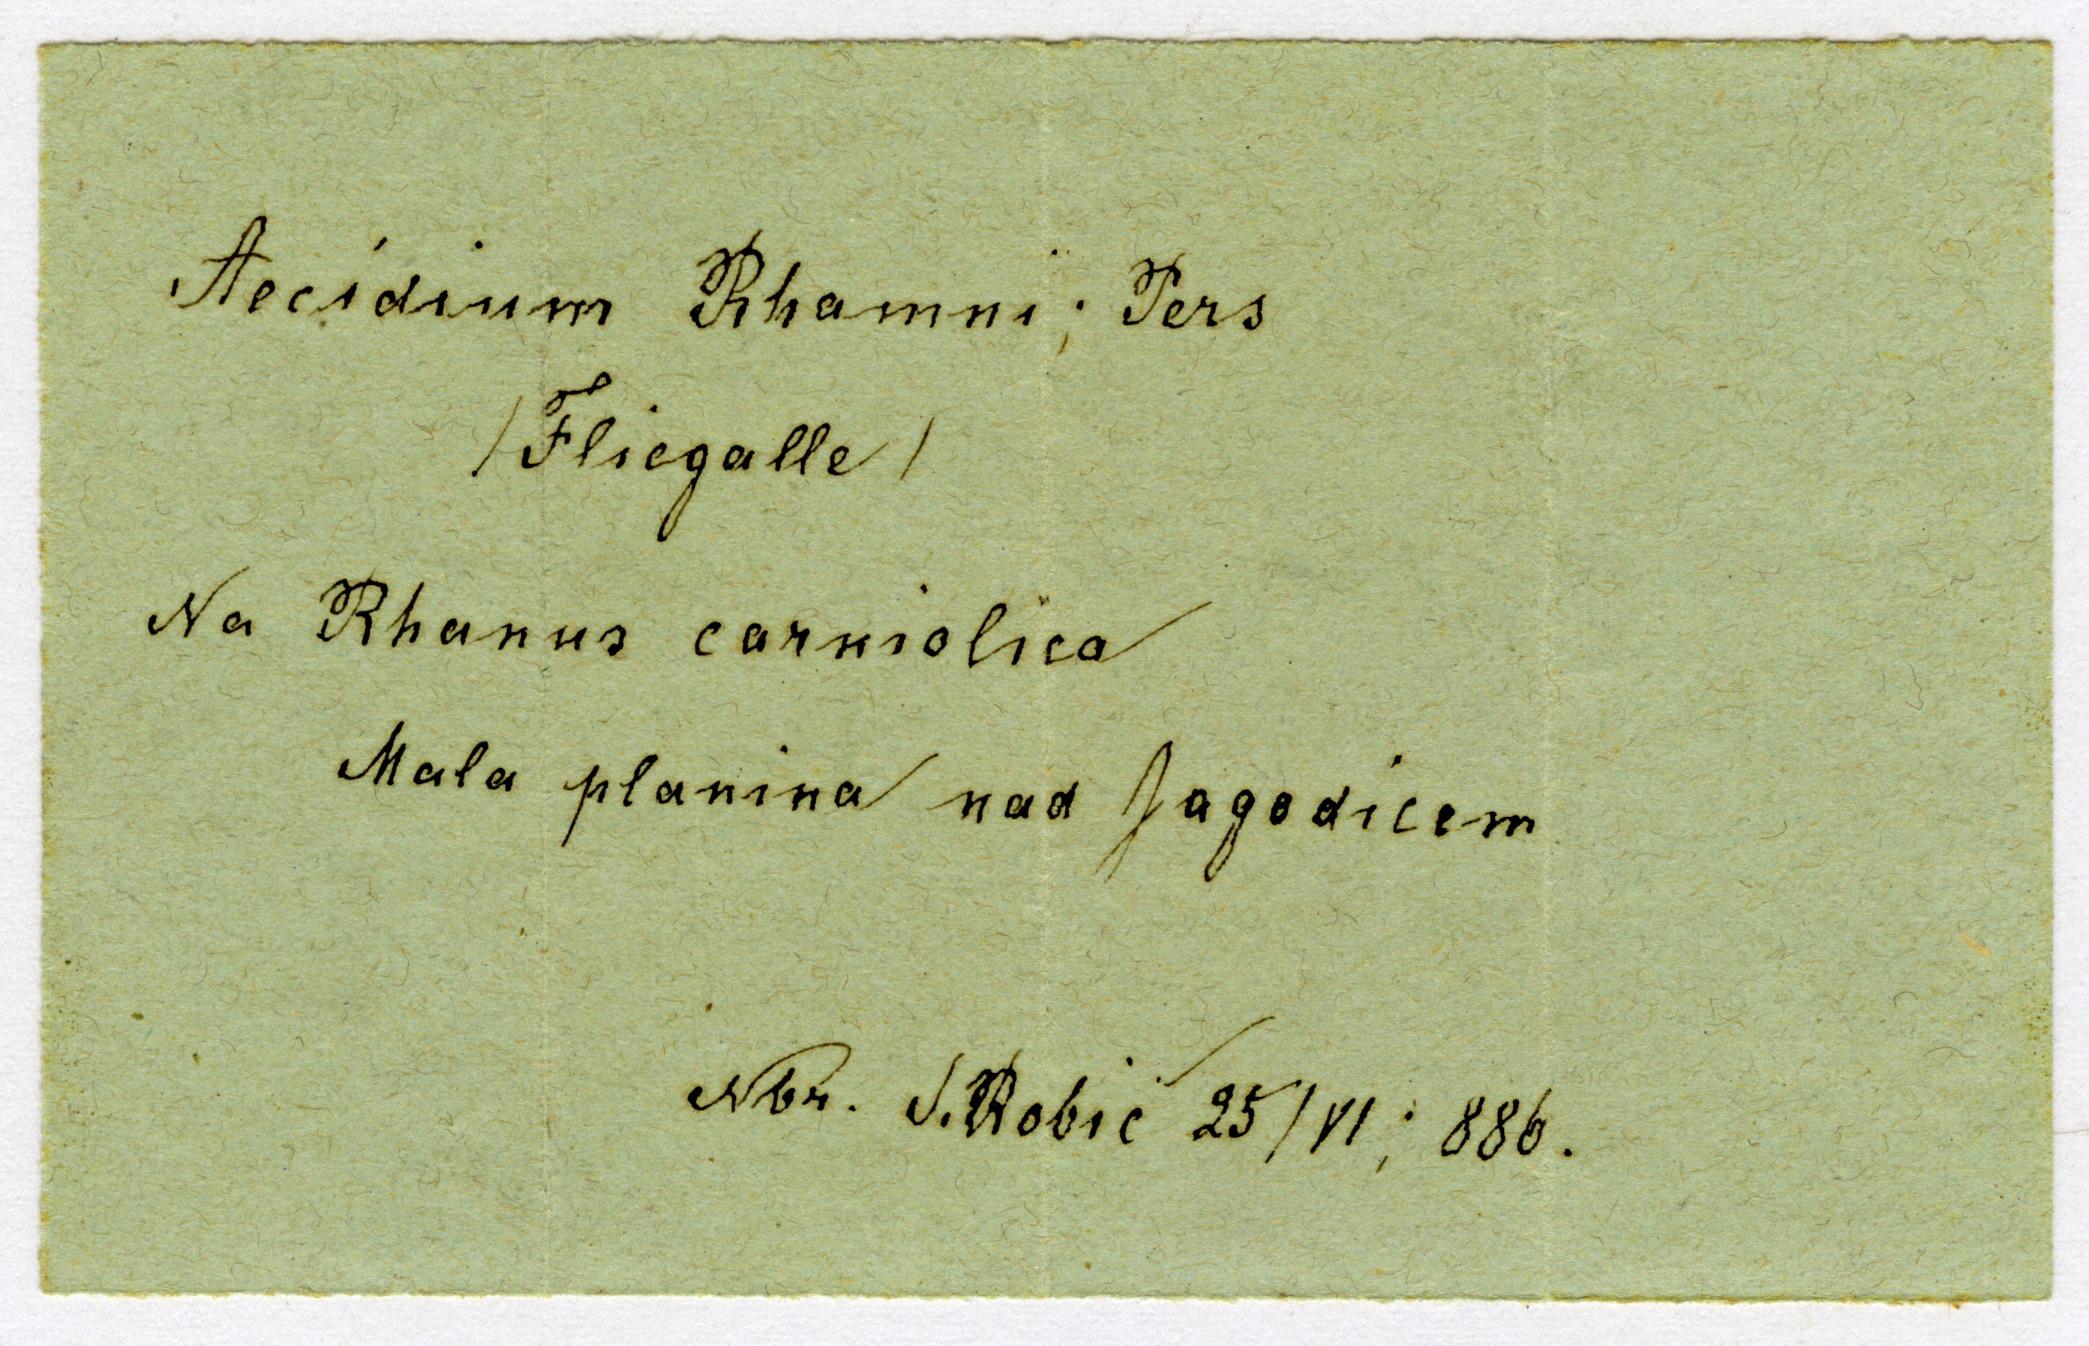 Aecidium Rhamni; Pers
/Fliegalle/
Na Rhanus carniolica
Mala planina nad Jagodicem
Nbr. S. Robič 25/VI; 886.